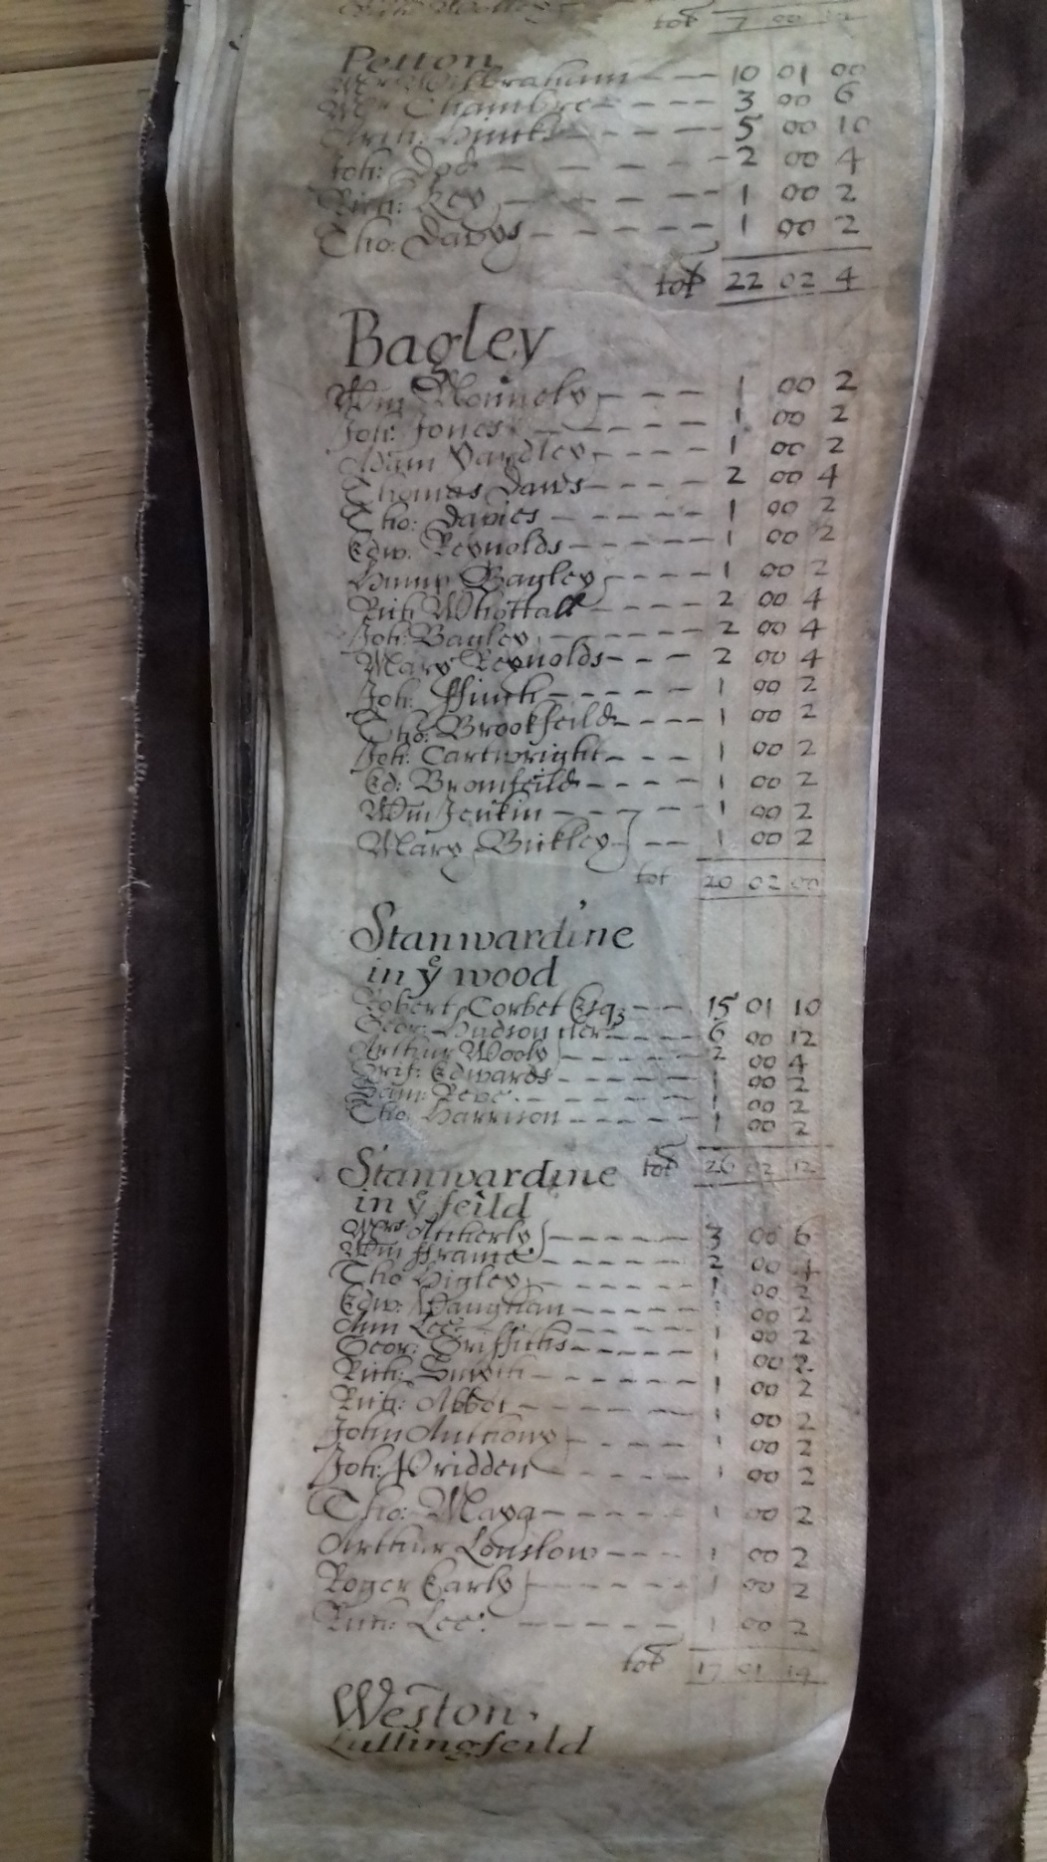 tot 7 00
Petton
Mr Wilbraham 10 01 00
Mr Chambre 3 00 6
Hincks 5 00 10
Joh: Dod 2 00 4
Rich: Key 1 00 2
Tho: Davys 1 00 2
tot 22 02 4
Bagley
Wm 1 00 2
Joh: Jones 1 00 2
Adam Vardley 1 00 2
Thomas Daws 2 00 4
Tho: Davies 1 00 2
Edw. Reynolds 1 00 2
Bagley 1 00 2
Rich Whottall 2 00 4
Joh: Bagley 2 00 4
Mary Reynolds 2 00 4
Joh: ffinch 1 00 2
Tho: Brookfeild 1 00 2
Joh: Cartwright 1 00 2
Ed: Bromfeild 1 00 2
Wm Jenkin 1 00 2
Mary Bickley 1 00 2
tot 20 02 00
Stanwardine
in ye wood
Robert Corbet Esq 15 01 10
Geor: Hudson 6 00 12
Arthur Wooly 2 00 4
Grif: Edwards 1 00 2
Sam: 1 00 2
Tho: Harrison 1 00 2
tot 26 02 12
Stanwardine
in ye feild
Mrs Atcherly 3 00 6
Wm fframe 2 00 4
Tho Higley 1 00 2
Edw: Vaughan 1 00 2
Ann Lee 1 00 2
Geor: Griffiths 1 00 2
Rich: 1 00 2
Rich: Abbot 1 00 2
John Anthony 1 00 2
Joh: Pridden 1 00 2
Tho: 1 00 2
Arthur Lonslow 1 00 2
Roger Early 1 00 2
Rich: Lee: 1 00 2
tot 17 01 14
Weston
Lullingfeild